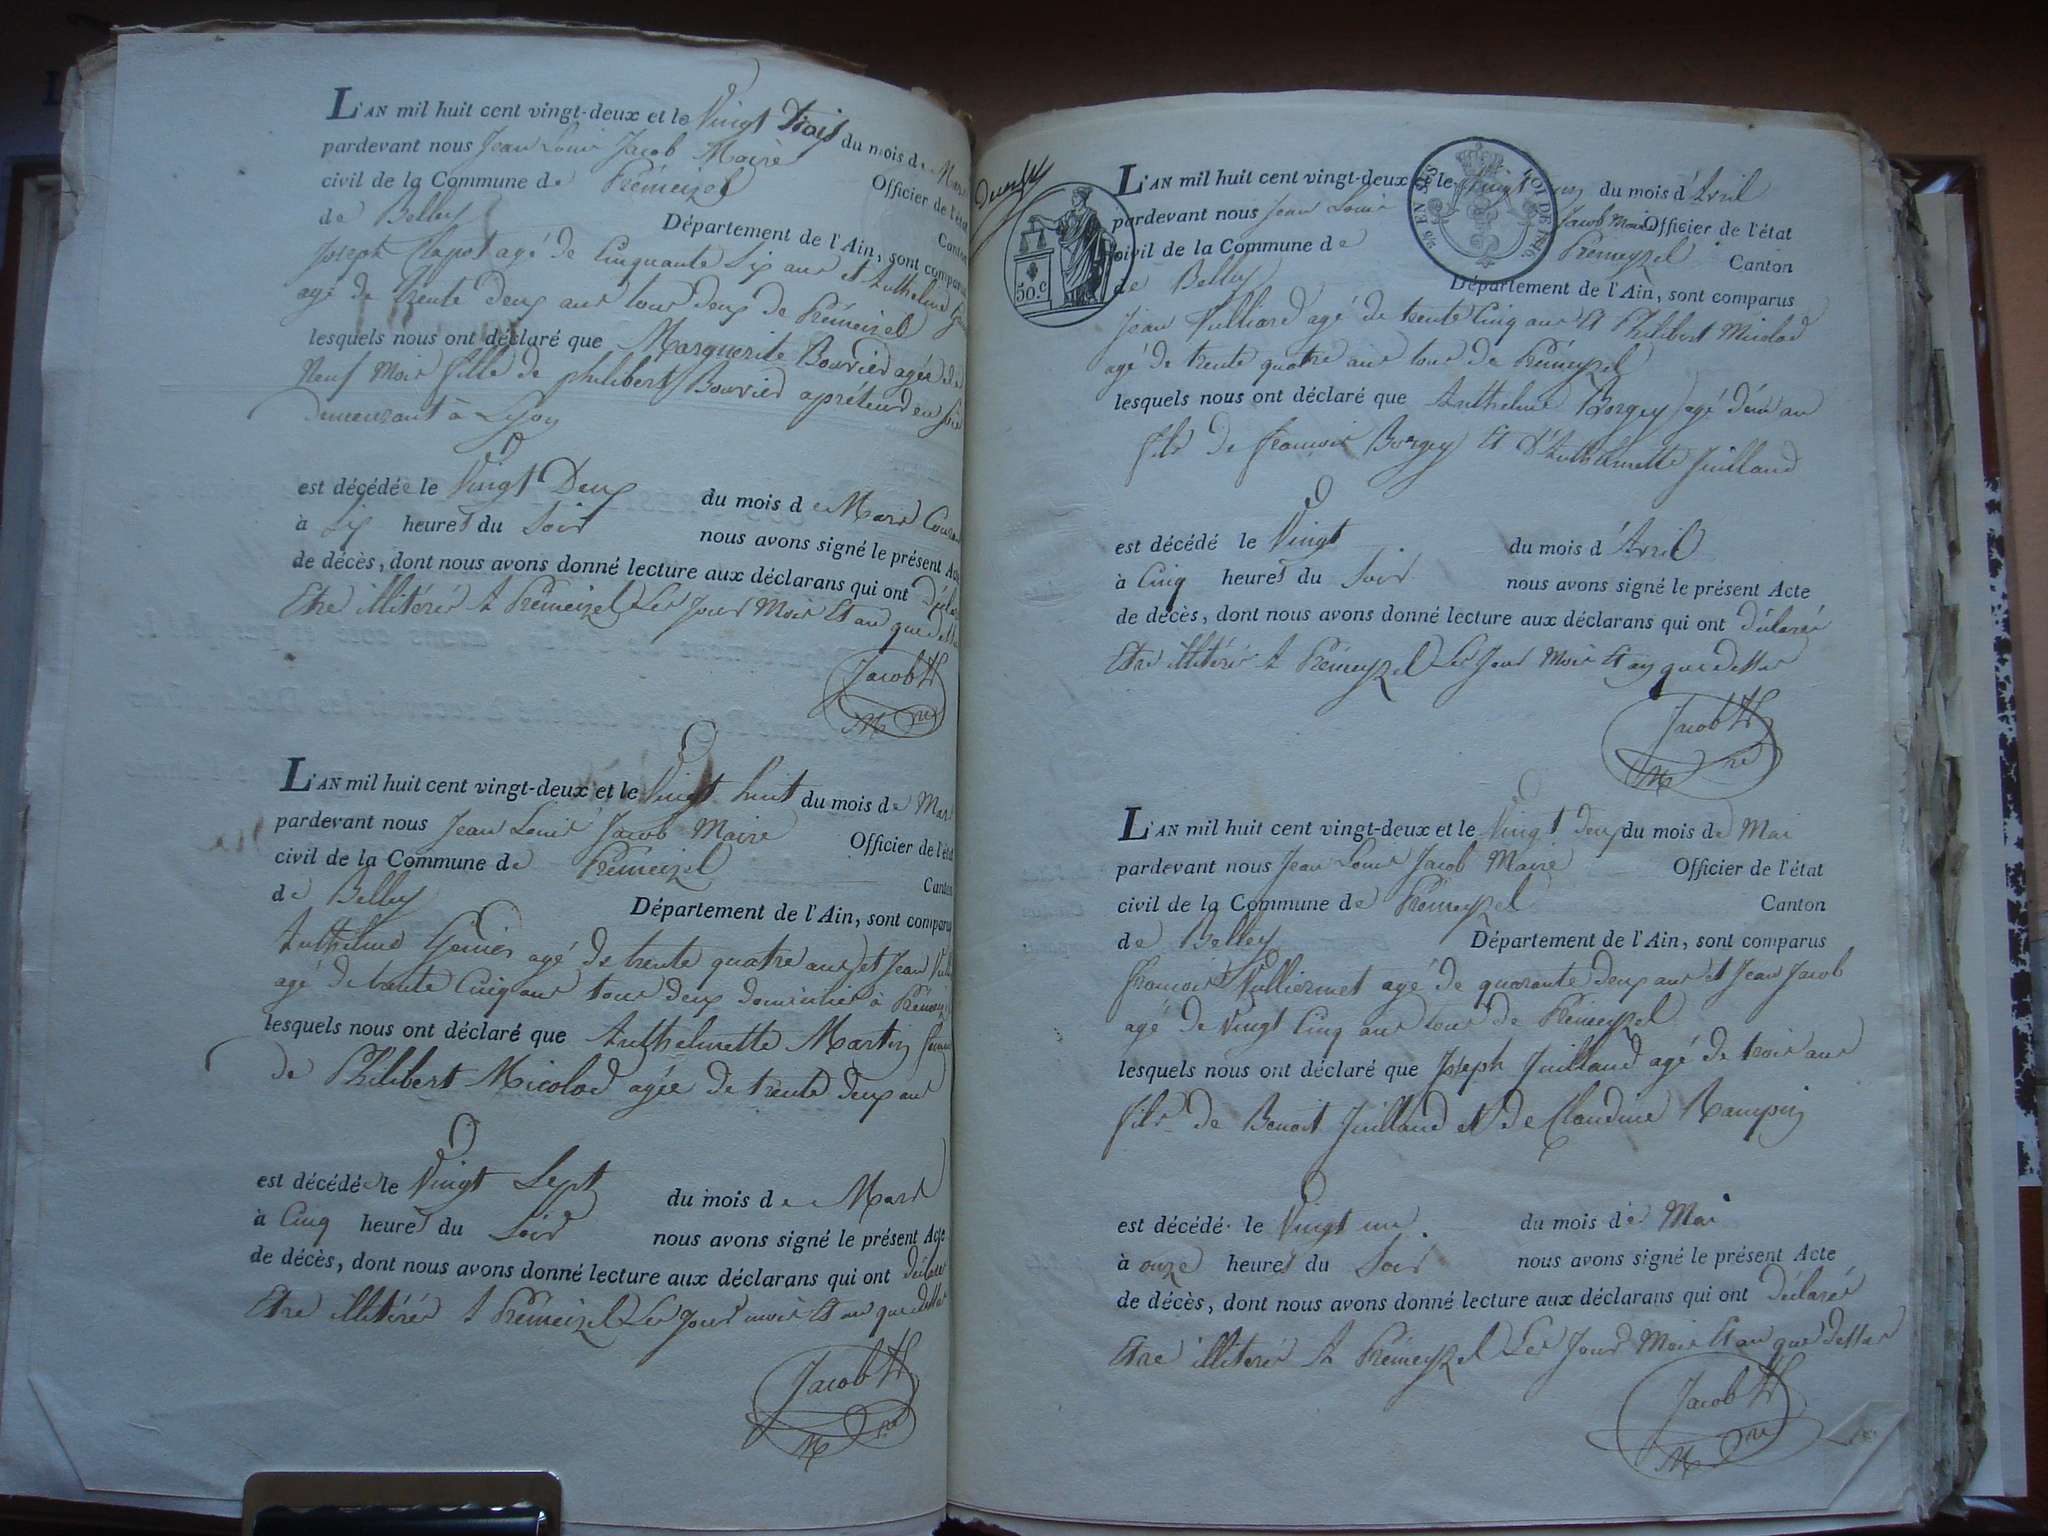 L'AN mil huit cent vingt-deux et le Vingt Trois du mois de Mars
pardevant nous Jean Louis Jacob Maire Officier de l'état
civil de la Commune de Prémeizel Canton
de Belley Département de l'Ain, sont comparus
Joseph Clapot agé de Cinquante Six ans et Anthelme
agé de trente deux ans tous deux de Prémeizel
lesquels nous ont déclaré que Marguerite Bouvier agée de
Neuf Mois fille de philibert Bouvier apréteur en
Demeurant à Lyon
est décédée le Vingt Deux du mois de Mars Courant
à Six heures du Soir nous avons signé le présent Acte
de décès, dont nous avons donné lecture aux déclarans qui ont
Etre illitérés A Prémeizel Les Jour Mois Et an que
Jacob
M re
L'AN mil huit cent vingt-deux et le Vingt huit du mois de Mars
pardevant nous Jean Louis Jacob Maire Officier de l'état
civil de la Commune de Prémeizel Canton
de Belley Département de l'Ain, sont comparus
Anthelme Genier agé de trente quatre ans et Jean
agé de trente Cinq ans tous deux domicilier à Prémeizel
lesquels nous ont déclaré que Anthelmette Martin
de Philibert Micolod agée de trente deux ans
est décédée le Vingt Sept du mois de Mars
à Cinq heures du Soir nous avons signé le présent Acte
de décès, dont nous avons donné lecture aux déclarans qui ont déclaré
Etre illitérés A Prémeizel Les Jour mois Et an que dessus
Jacob
M re
50.c
EN SUS
LOI DE 1816
L'AN mil huit cent vingt-deux et le Vingt du mois d'Avril
pardevant nous Jean Louis Jacob Maire Officier de l'état
civil de la Commune de Prémeyzel Canton
de Belley Département de l'Ain, sont comparus
Jean Vulliard agé de trente Cinq ans Et Philibert Micolod
agé de trente quatre ans tous de Prémeyzel
lesquels nous ont déclaré que Anthelme Borgey agé d'un an
fils de francois Borgey Et d'Anthelmette Juilland
est décédé le Vingt du mois d'Avril
à Cinq heures du Soir nous avons signé le présent Acte
de décès, dont nous avons donné lecture aux déclarans qui ont déclaré
Etre illitérés A Prémeyzel Les Jour Mois Et an que dessus
Jacob
M re
L'AN mil huit cent vingt-deux et le Vingt deux du mois de Mai
pardevant nous Jean Louis Jacob Maire Officier de l'état
civil de la Commune de Prémeyzel Canton
de Belley Département de l'Ain, sont comparus
francois Vulliermet agé de quarante deux ans et Jean Jacob
agé de Vingt Cinq ans tous de Prémeyzel
lesquels nous ont déclaré que Joseph Juilland agé de trois ans
fils de Benoit Juilland et de Claudine Rampin
est décédé le Vingt un du mois de Mai
à onze heures du Soir nous avons signé le présent Acte
de décès, dont nous avons donné lecture aux déclarans qui ont Déclaré
Etre illitérés A Prémeyzel Les Jour Mois Et an que dessus
Jacob
M re